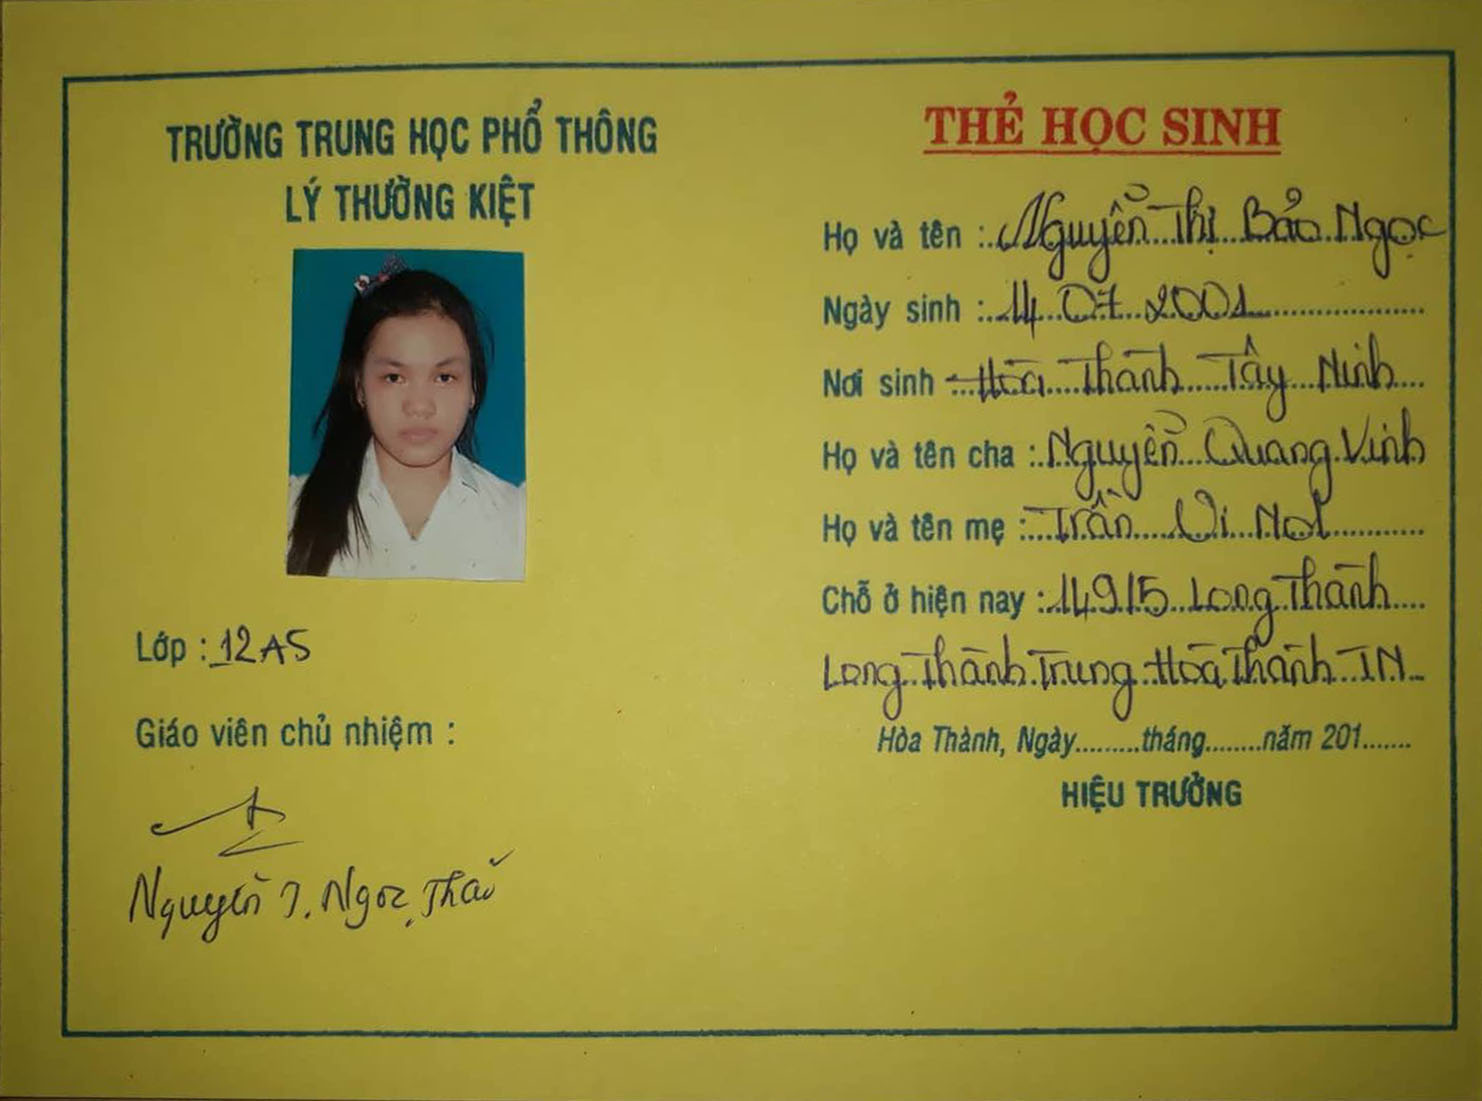 TRƯỜNG TRUNG HỌC PHỔ THÔNG
LÝ THƯỜNG KIỆT
Lớp : 12A5
Giáo viên chủ nhiệm :
Nguyễn T. Ngọc Thảo
THẺ HỌC SINH
Họ và tên : Nguyễn Thị Bảo Ngọc
Ngày sinh : 14.07.2001
Nơi sinh Hòa Thành Tây Ninh
Họ và tên cha : Nguyễn Quang Vinh
Họ và tên mẹ : Trần Vi
Chỗ ở hiện nay : 149/5 Long Thành
Long Thành Trung Hòa Thành TN
Hòa Thành, Ngày.........tháng........năm 201.......
HIỆU TRƯỞNG